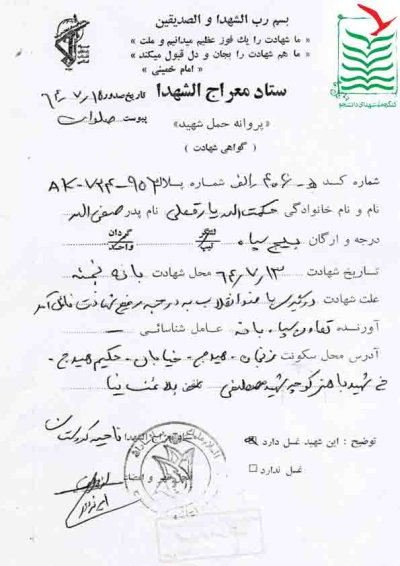 بسم رب الشهدا و الصدیقین
« ما شهادت را یك فوز عظیم میدانیم و ملت
« ما هم شهادت را بجان و دل قبول میکند »
« امام خمینی »
ستاد معراج الشهدا
تاریخ صدور ۶۲/۷/۱۵
پیوست صلوات
کنگره ملی شهدای دانشجو
« پروانه حمل شهید »
( گواهی شهادت )
شماره کد ۵-۴۰۶ الف شماره پلاک AK-734-953
نام و نام خانوادگی حکمت الله یارقلی نام پدر صفی الله
درجه و ارگان بسیج سپاه لشگر تیپ گردان واحد
تاریخ شهادت ۶۲/۷/۱۳ محل شهادت بانه
علت شهادت درگیری با ضد انقلاب به درجه رفیع شهادت نائل آمد
آورنده تعاون سپاه بانه عامل شناسائی —
آدرس محل سکونت زنجان - هیدج - خیابان - حکیم هیدجی -
شهید مصطفی
توضیح : این شهید غسل دارد
غسل ندارد
معراج الشهدا ناحیه کردستان
محل مهر و امضاء